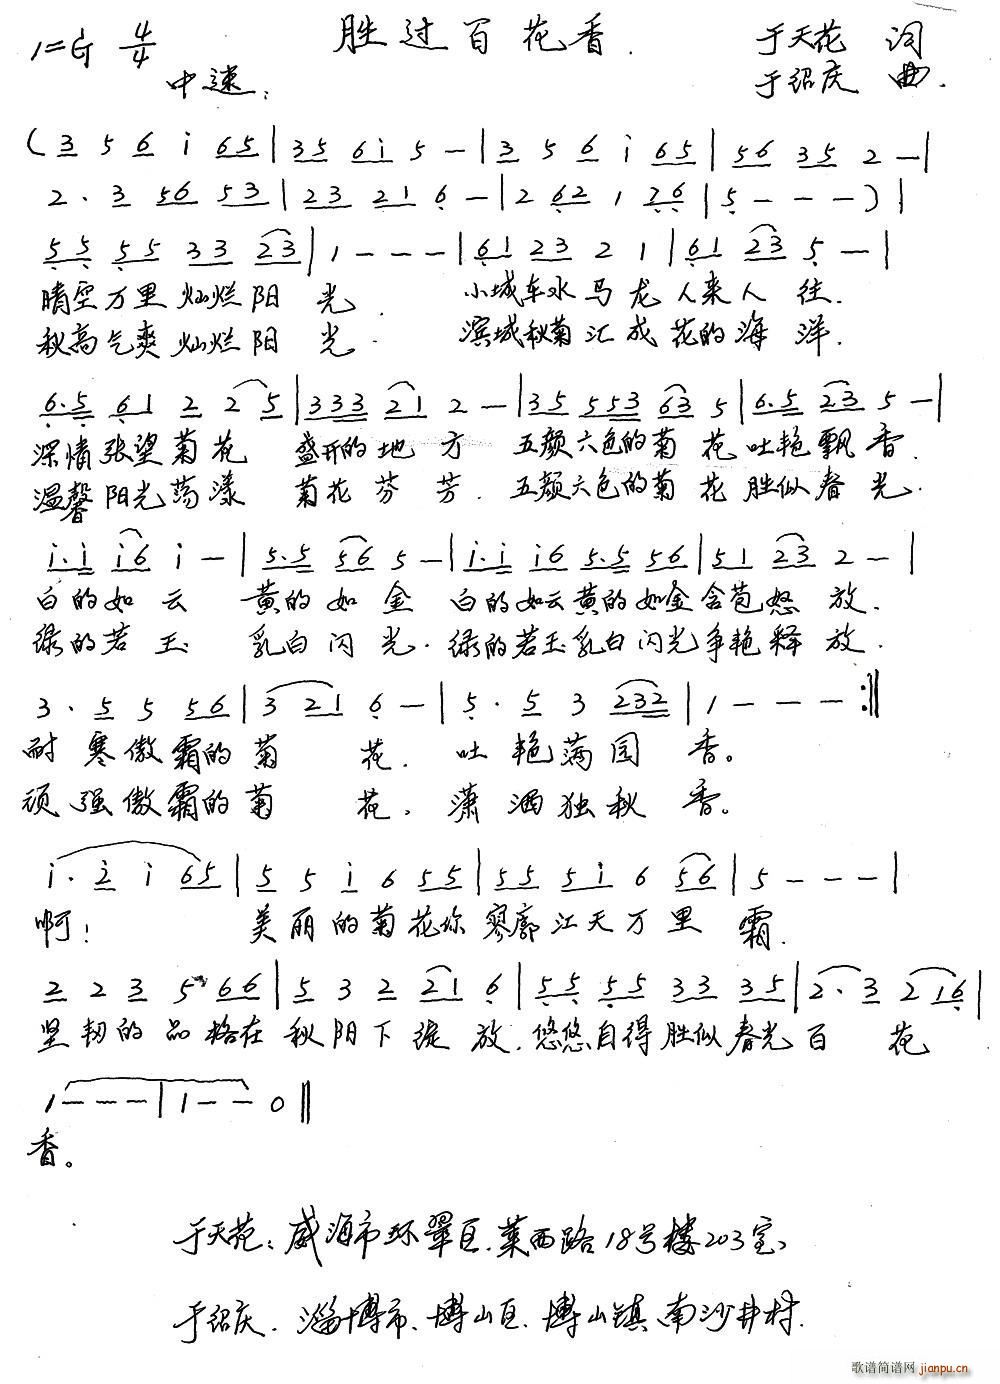 胜过百花香.
1=G 4/4
于天花 词
中速:
于绍庆 曲.
(3 5 6 i 65|35 6i 5 -|3 5 6 i 65|56 35 2 -|
2· 3 56 53|23 21 6 -|2 62 1 76|5 - - -)|
55 55 33 23|1 - - -|61 23 2 1|61 23 5 -|
晴空万里灿烂阳 光. 小城车水马龙人来人 往.
秋高气爽灿烂阳 光. 滨城秋菊汇成花的海 洋.
6·5 61 2 2 5|333 21 2 -|35 553 63 5|6·5 23 5 -|
深情张望菊花 盛开的地 方 五颜六色的菊 花吐艳飘香.
温馨阳光荡漾 菊花芬 芳. 五颜六色的菊 花胜似春光.
i·i i6 i -|5·5 56 5 -|i·i i6 5·5 56|51 23 2 -|
白的如云 黄的如金 白的如云黄的如金含苞怒 放.
绿的若玉 乳白闪光. 绿的若玉乳白闪光争艳释放.
3· 5 5 56|3 21 6 -|5· 5 3 232|1 - - -:‖
耐寒傲霜的菊 花. 吐艳满园 香。
顽强傲霜的菊 花. 潇洒独秋 香。
i· 2 i 65|5 5 i 6 55|55 5i 6 56|5 - - -|
啊! 美丽的菊花你寥廓江天万里 霜.
2 2 3 5 66|5 3 2 21 6|55 55 33 35|2· 3 2 16|
坚韧的品格在秋阳下绽 放.悠悠自得胜似春光百 花
1 - - -|1 - - 0‖
香。
于天花: 威海市环翠区.莱西路18号楼203室、
于绍庆. 淄博市、博山区.博山镇、南沙井村.
歌谱简谱网 jianpu.cn